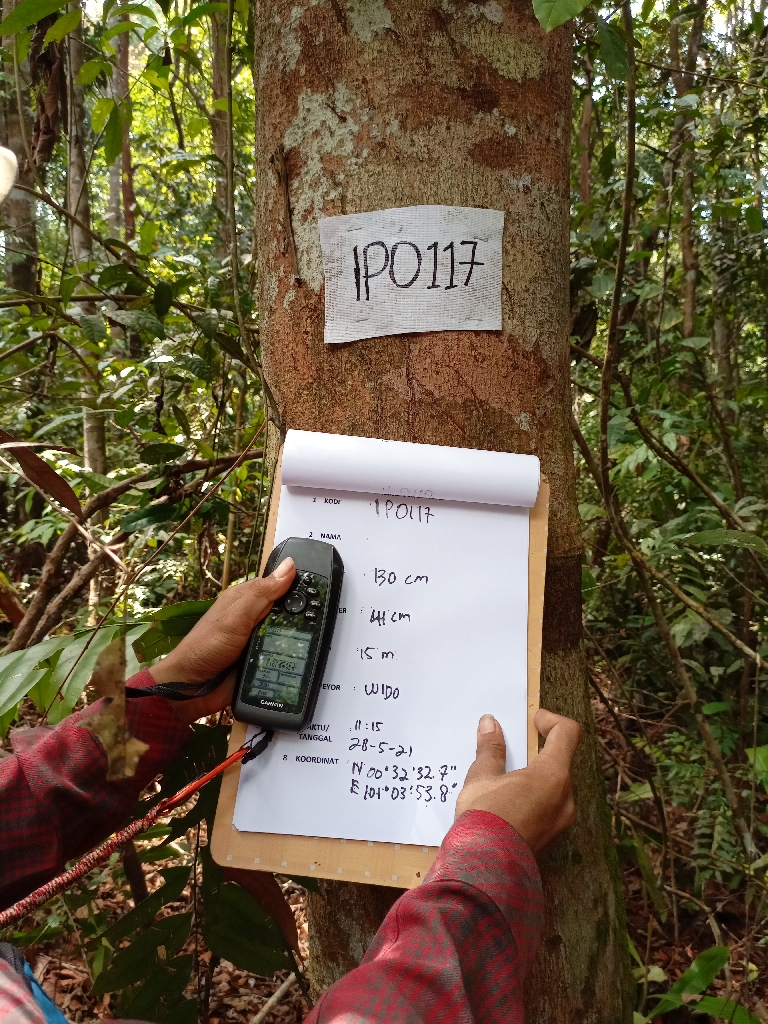 IPO117
1 KODE
: IPO117
2 NAMA
: 130 cm
ER : 41 cm
: 15 m
EYOR : WIDO
AKTU/ : 11:15
TANGGAL 28-5-21
8 KOORDINAT N 00° 32' 32.7"
E 101° 03' 53.8"
GARMIN